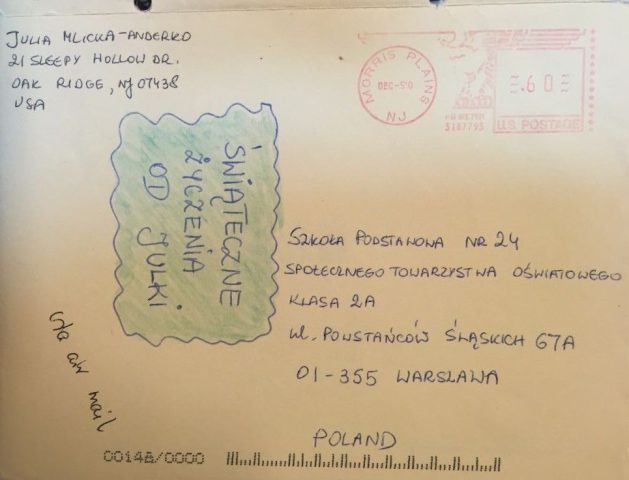 JULIA MLICKA-ANDERKO
21 SLEEPY HOLLOW DR.
OAK RIDGE, NJ 07438
USA
MORRIS PLAINS
DEC-5'0
NJ
PB METER
3187795
.60
U.S. POSTAGE
ŚWIĄTECZNE
ŻYCZENIA
OD JULKI
SZKOŁA PODSTAWOWA NR 24
SPOŁECZNEGO TOWARZYSTWA OŚWIATOWEGO
KLASA 2A
ul. POWSTAŃCÓW ŚLĄSKICH 67A
01-355 WARSZAWA
POLAND
via air mail
0014A/0000